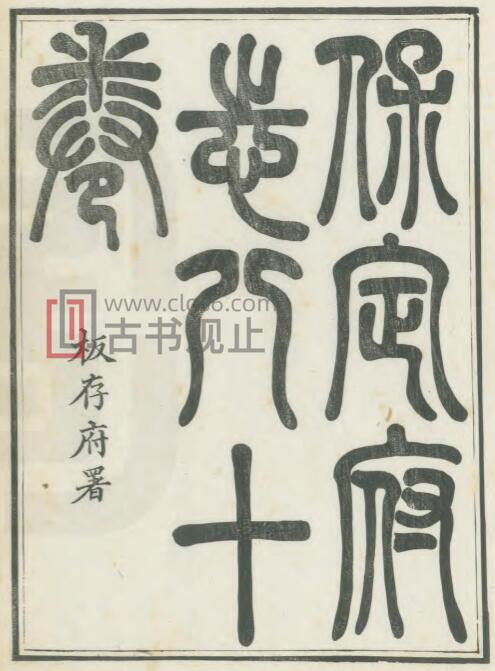 保定府
志八十
卷
板存府署
www.clcx6.com
古书观止